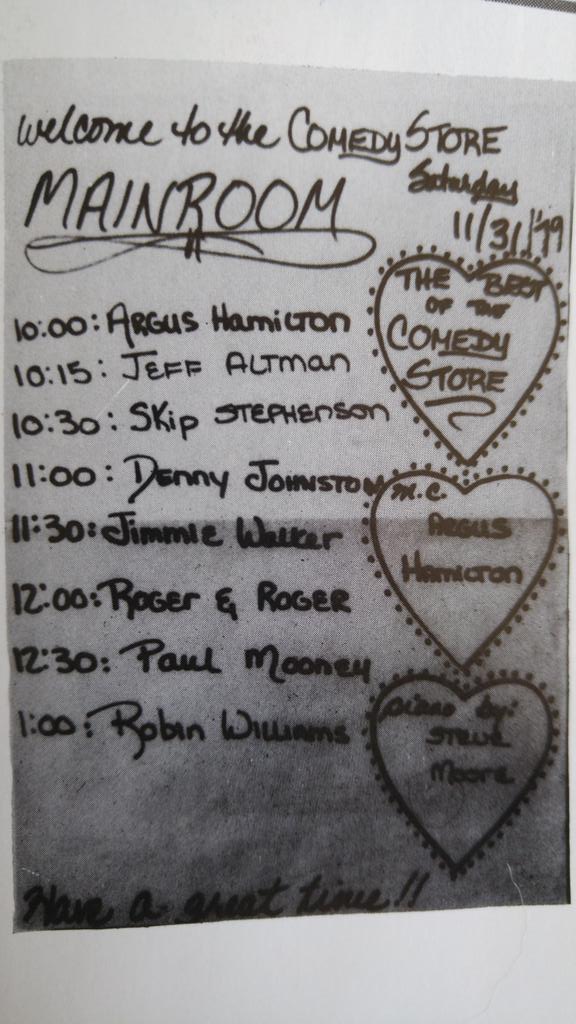 welcome to the COMEDY STORE
MAINROOM
Saturday
11/31/'79
THE BEST
OF THE
COMEDY
STORE
10:00: ARGUS HamiLTON
10:15: JEFF ALTman
10:30: Skip STEPHENSON
11:00: Denny JOHNSTON
11:30: Jimmie Walker
12:00: ROGER & ROGER
12:30: Paul Mooney
1:00: Robin Williams
m.c.
ARGUS
HamiLTON
piano by:
STEVE
Moore
Have a great time!!